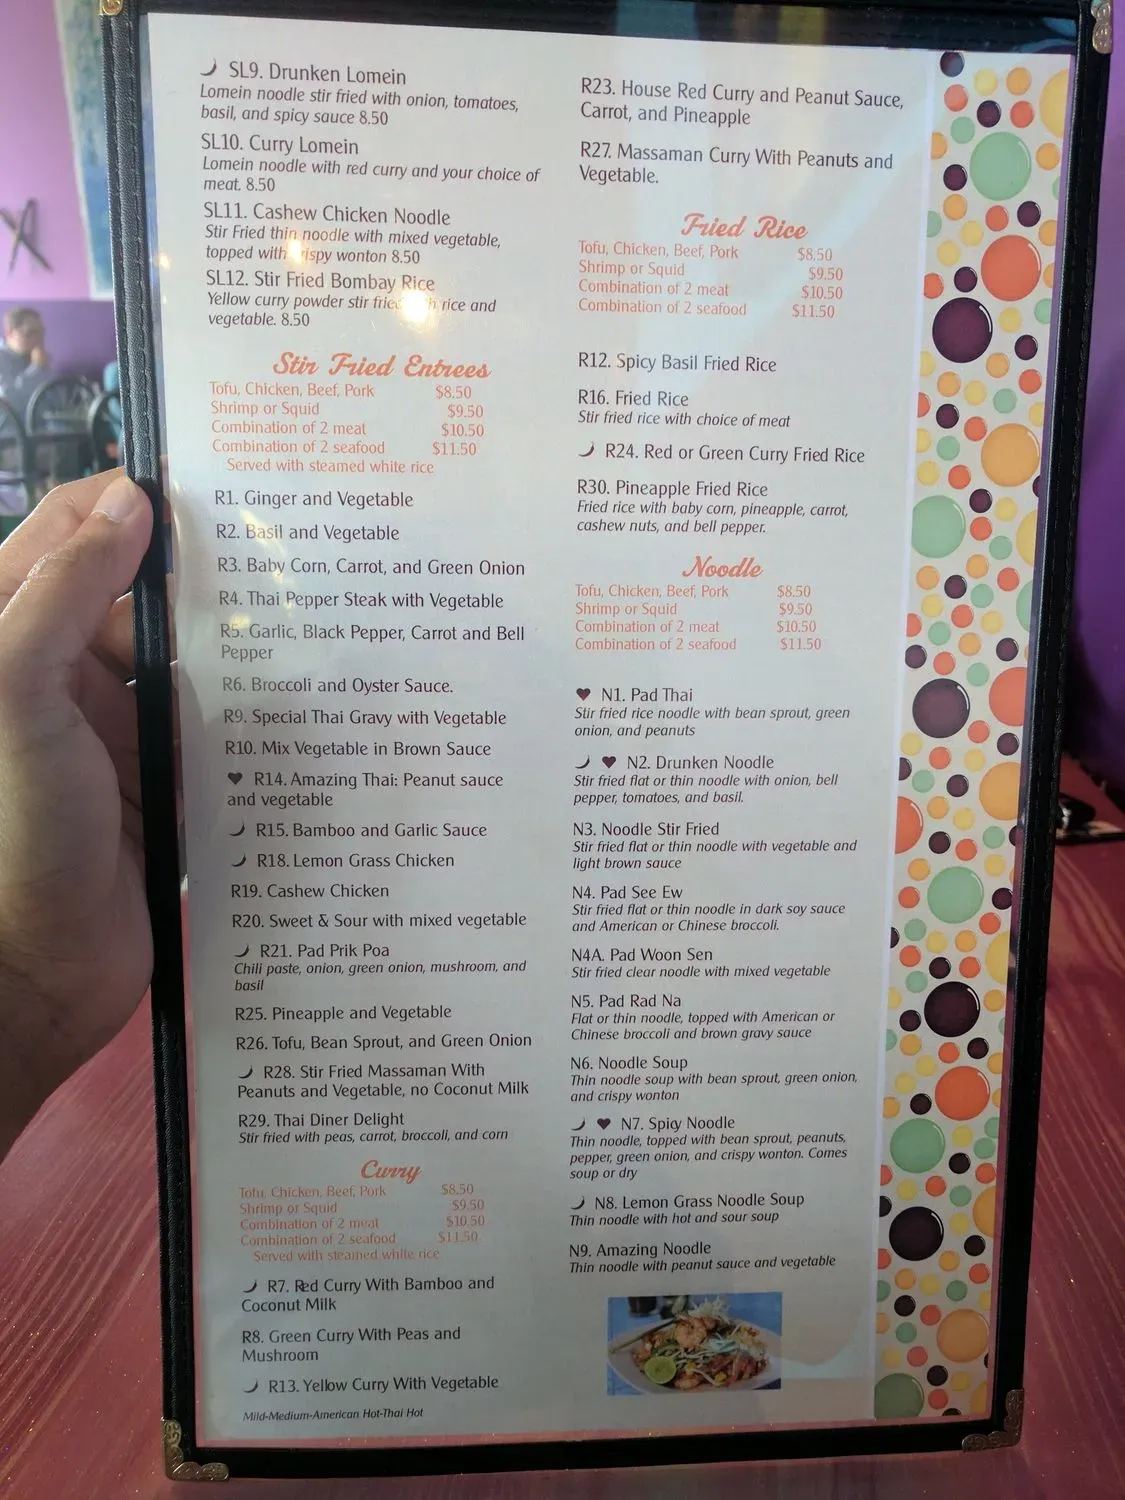 SL9. Drunken Lomein
Lomein noodle stir fried with onion, tomatoes,
basil, and spicy sauce 8.50
SL10. Curry Lomein
Lomein noodle with red curry and your choice of
meat. 8.50
SL11. Cashew Chicken Noodle
Stir Fried thin noodle with mixed vegetable,
topped with crispy wonton 8.50
SL12. Stir Fried Bombay Rice
Yellow curry powder stir fried with rice and
vegetable. 8.50
Stir Fried Entrees
Tofu, Chicken, Beef, Pork $8.50
Shrimp or Squid $9.50
Combination of 2 meat $10.50
Combination of 2 seafood $11.50
Served with steamed white rice
R1. Ginger and Vegetable
R2. Basil and Vegetable
R3. Baby Corn, Carrot, and Green Onion
R4. Thai Pepper Steak with Vegetable
R5. Garlic, Black Pepper, Carrot and Bell
Pepper
R6. Broccoli and Oyster Sauce.
R9. Special Thai Gravy with Vegetable
R10. Mix Vegetable in Brown Sauce
R14. Amazing Thai: Peanut sauce
and vegetable
R15. Bamboo and Garlic Sauce
R18. Lemon Grass Chicken
R19. Cashew Chicken
R20. Sweet & Sour with mixed vegetable
R21. Pad Prik Poa
Chili paste, onion, green onion, mushroom, and
basil
R25. Pineapple and Vegetable
R26. Tofu, Bean Sprout, and Green Onion
R28. Stir Fried Massaman With
Peanuts and Vegetable, no Coconut Milk
R29. Thai Diner Delight
Stir fried with peas, carrot, broccoli, and corn
Curry
Tofu, Chicken, Beef, Pork $8.50
Shrimp or Squid $9.50
Combination of 2 meat $10.50
Combination of 2 seafood $11.50
Served with steamed white rice
R7. Red Curry With Bamboo and
Coconut Milk
R8. Green Curry With Peas and
Mushroom
R13. Yellow Curry With Vegetable
Mild-Medium-American Hot-Thai Hot
R23. House Red Curry and Peanut Sauce,
Carrot, and Pineapple
R27. Massaman Curry With Peanuts and
Vegetable.
Fried Rice
Tofu, Chicken, Beef, Pork $8.50
Shrimp or Squid $9.50
Combination of 2 meat $10.50
Combination of 2 seafood $11.50
R12. Spicy Basil Fried Rice
R16. Fried Rice
Stir fried rice with choice of meat
R24. Red or Green Curry Fried Rice
R30. Pineapple Fried Rice
Fried rice with baby corn, pineapple, carrot,
cashew nuts, and bell pepper.
Noodle
Tofu, Chicken, Beef, Pork $8.50
Shrimp or Squid $9.50
Combination of 2 meat $10.50
Combination of 2 seafood $11.50
N1. Pad Thai
Stir fried rice noodle with bean sprout, green
onion, and peanuts
N2. Drunken Noodle
Stir fried flat or thin noodle with onion, bell
pepper, tomatoes, and basil.
N3. Noodle Stir Fried
Stir fried flat or thin noodle with vegetable and
light brown sauce
N4. Pad See Ew
Stir fried flat or thin noodle in dark soy sauce
and American or Chinese broccoli.
N4A. Pad Woon Sen
Stir fried clear noodle with mixed vegetable
N5. Pad Rad Na
Flat or thin noodle, topped with American or
Chinese broccoli and brown gravy sauce
N6. Noodle Soup
Thin noodle soup with bean sprout, green onion,
and crispy wonton
N7. Spicy Noodle
Thin noodle, topped with bean sprout, peanuts,
pepper, green onion, and crispy wonton. Comes
soup or dry
N8. Lemon Grass Noodle Soup
Thin noodle with hot and sour soup
N9. Amazing Noodle
Thin noodle with peanut sauce and vegetable